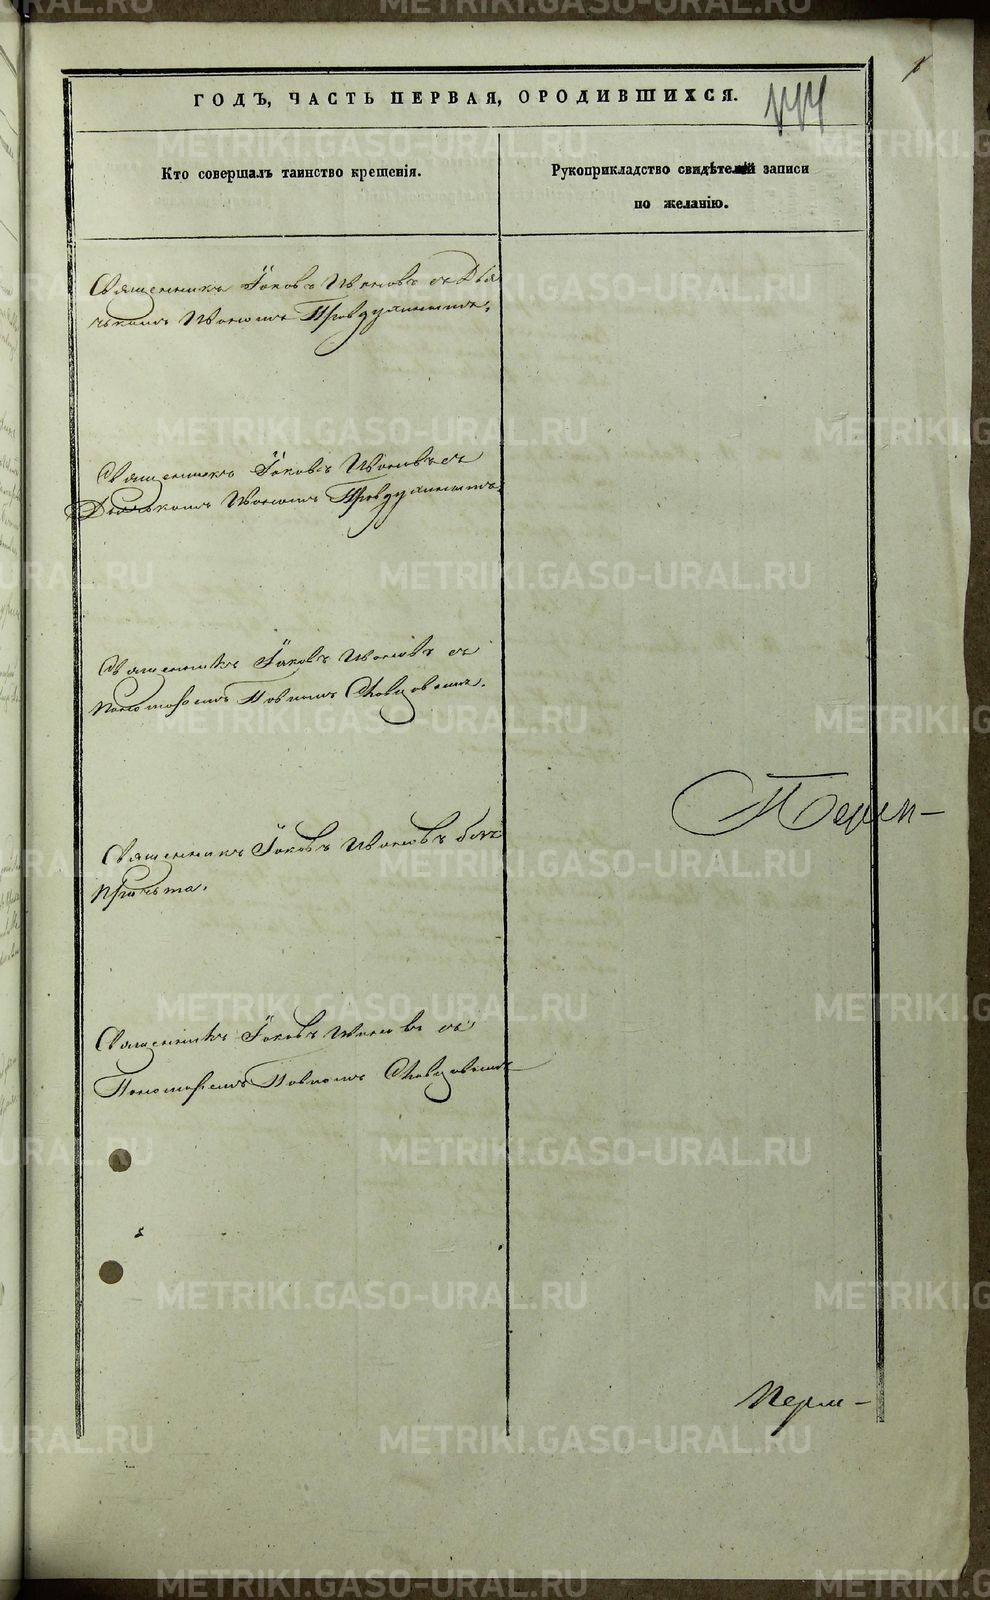 ГОДЪ, ЧАСТЬ ПЕРВАЯ, ОРОДИВШИХСЯ.
Кто совершалъ таинство крещенія.
Рукоприкладство свидѣтелей записи
по желанію.
Священникъ Іаковъ Ивановъ съ Дья
чькомъ Иваномъ
Священникъ Іаковъ Ивановъ съ
Дьячькомъ Иваномъ
Священникъ Іаковъ Ивановъ съ
пономаремъ Павломъ Словцовымъ.
Священникъ Іаковъ Ивановъ безъ
причьта.
Священникъ Іаковъ Ивановъ съ
Пономаремъ Павломъ Словцовымъ
Перм-
METRIKI.GASO-URAL.RU